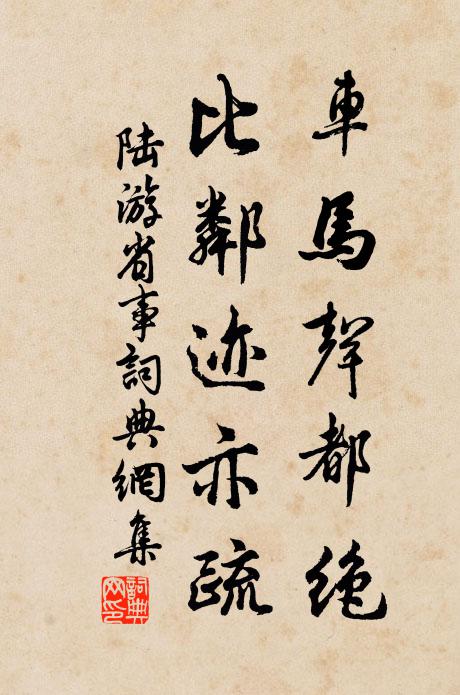 車馬聲都絶
比鄰迹亦疏
陸游省事詞典網集
詞典
网印